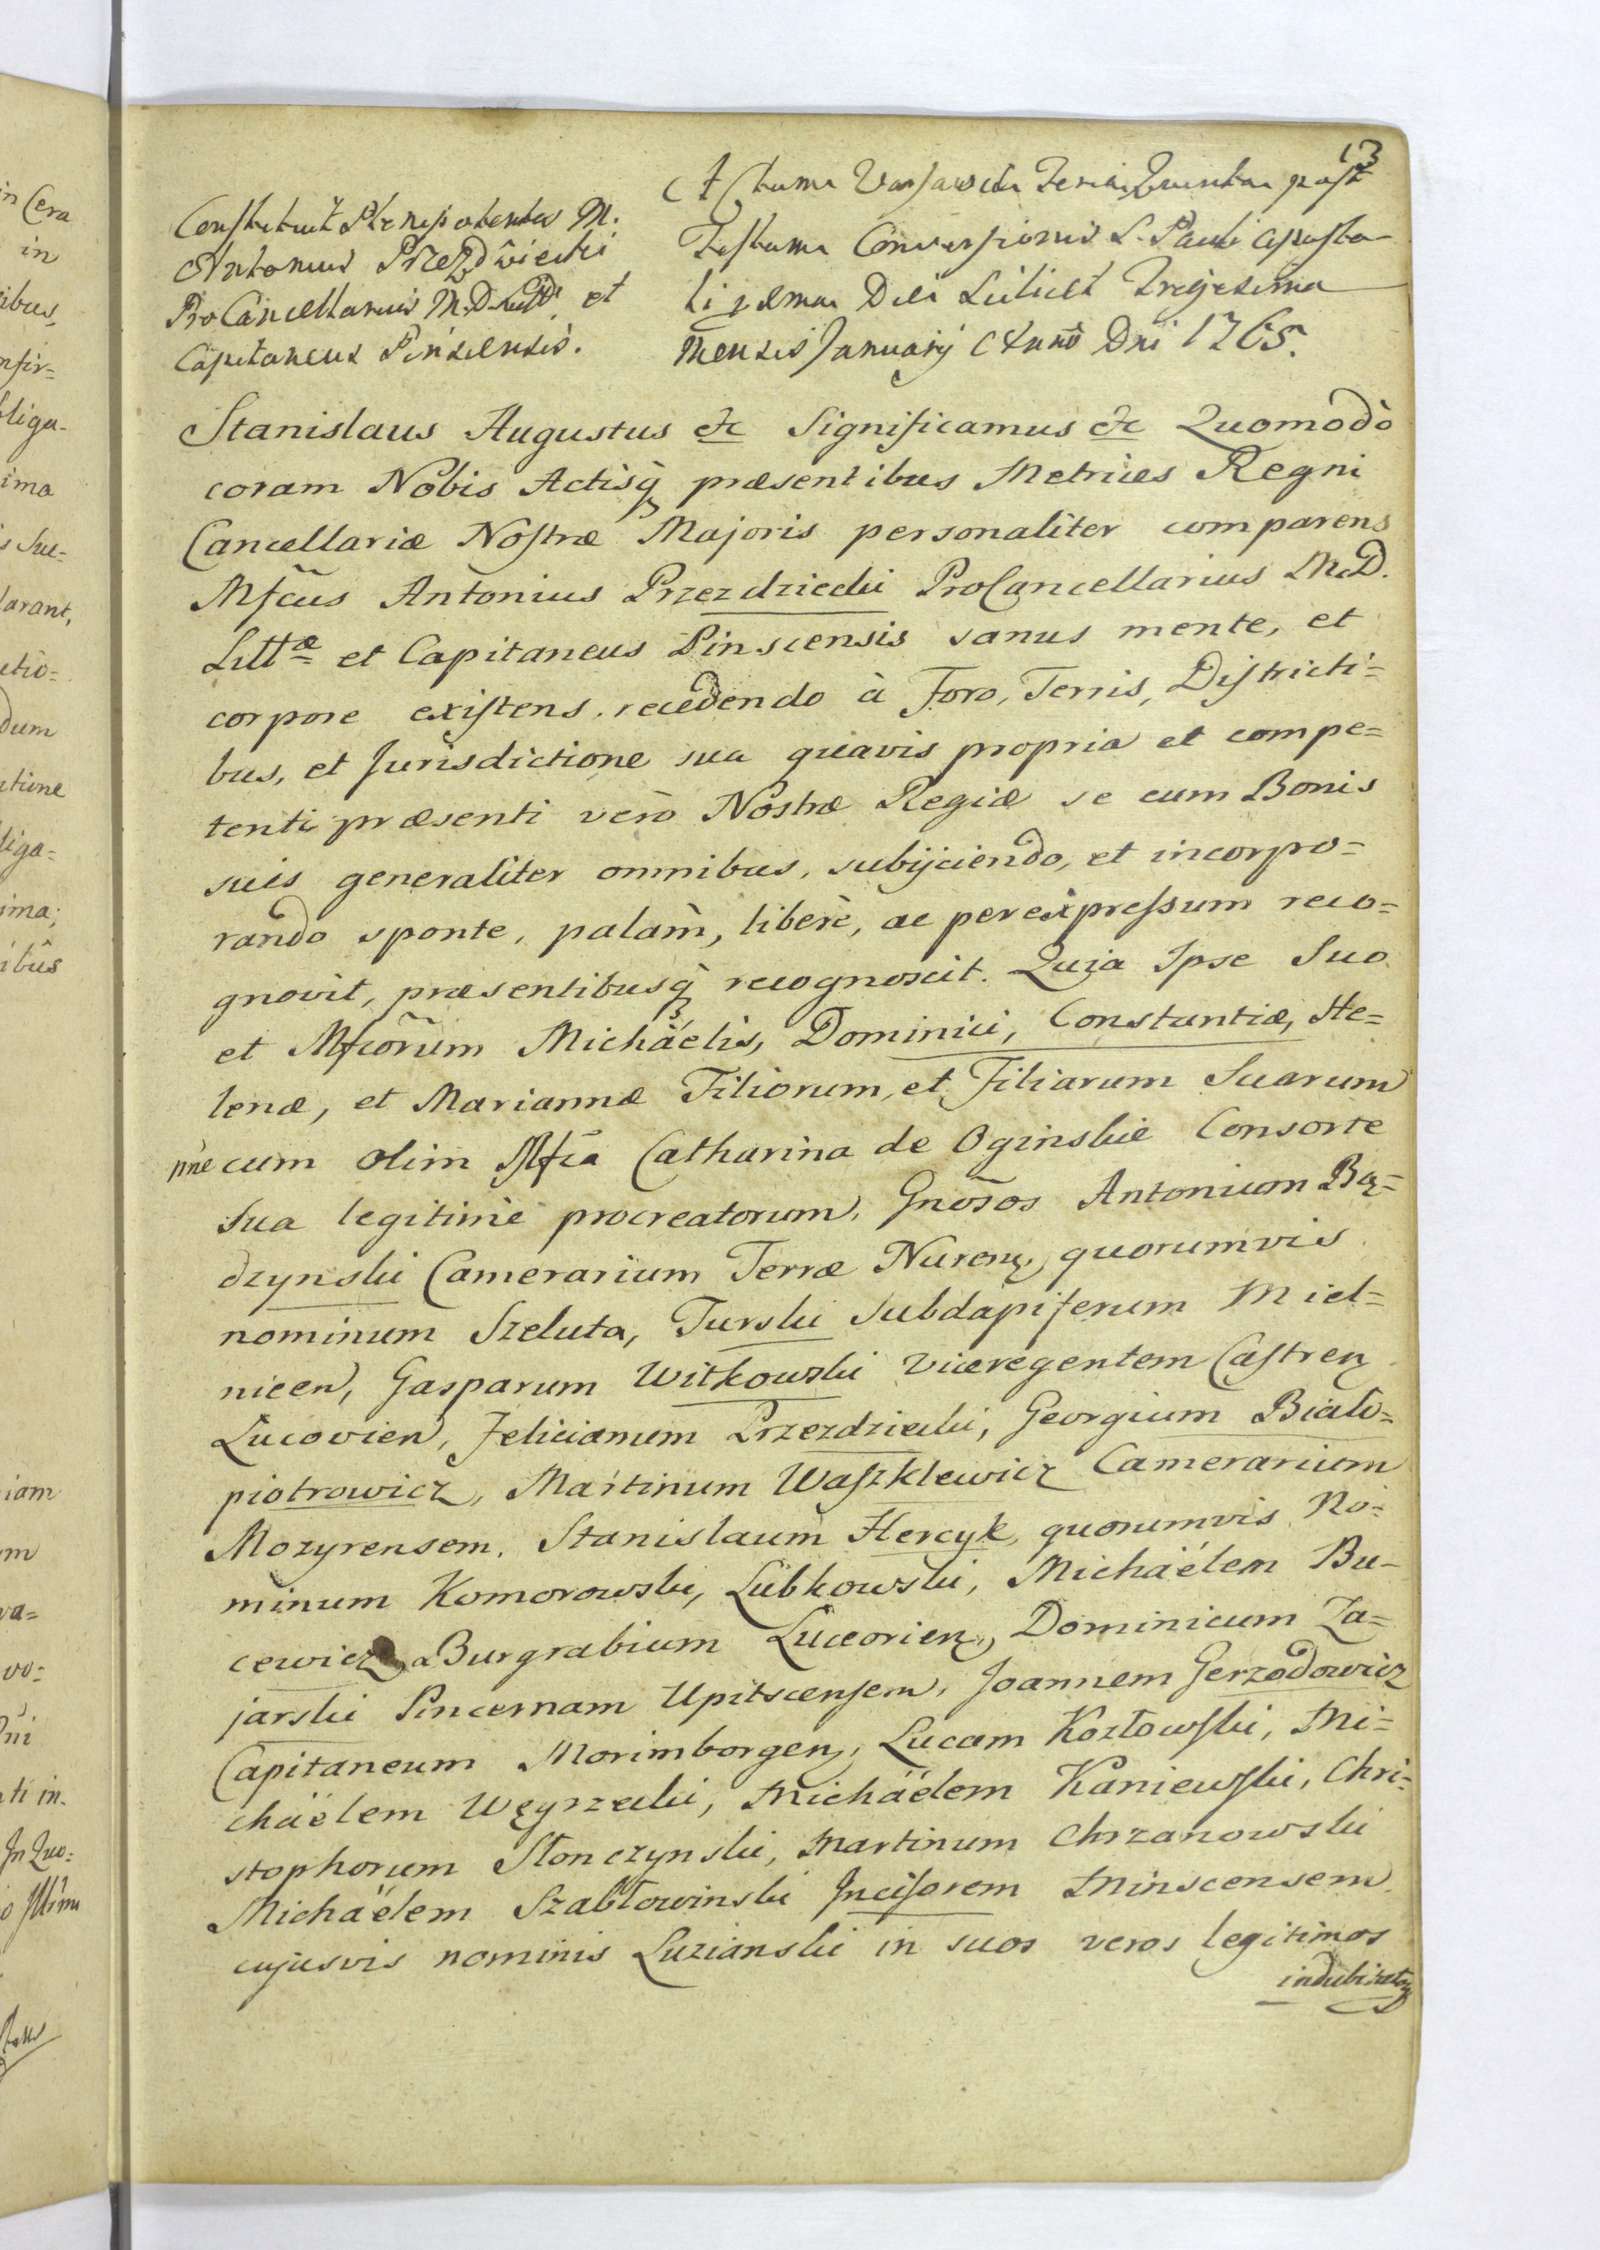 13
Constituit Plenipotentes M.
Antonius Przezdziecki
ProCancellarius M.D. Litt. et
Capitaneus Pinscensis.
Actum Varsaviæ Feria Quinta post
Festum Conversionis S. Pauli Aposto-
li Die Scilicet Trigesima
Mensis Januarij Anno Dni 1765.
Stanislaus Augustus etc Significamus etc Quomodò
coram Nobis Actisq præsentibus Metrices Regni
Cancellariæ Nostræ Majoris personaliter comparens
Mfcus Antonius Przezdziecki ProCancellarius M.D.
Littæ et Capitaneus Pinscensis sanus mente, et
corpore existens, recedendo à Foro, Terris, Districti=
bus, et Jurisdictione sua quavis propria et compe=
tenti præsenti verò Nostræ Regiæ se cum Bonis
suis generaliter omnibus, subijciendo, et incorpo=
rando sponte, palàm, liberè, ac per expressum reco=
gnovit, præsentibusq recognoscit. Quia Ipse Suo
et Mfcorum Michäelis, Dominici, Constantiæ, He=
lenæ, et Mariannæ Filiorum, et Filiarum Suarum
pñe cum olim Mfca Catharina de Oginskie Consorte
Sua legitimè procreatorum, Gnosos Antonium Bą=
dzynski Camerarium Terræ Nuren, quorumvis
nominum Szeluta, Turski Subdapiferum Miel=
nicen, Gasparum Witkowski Viceregentem Castren
Lucovien, Felicianum Przezdziecki, Georgium Biało=
piotrowicz, Martinum Waszklewicz Camerarium
Mozyrensem, Stanislaum Hercyk, quorumvis No=
minum Komorowski, Lubkowski, Michäelem Bu-
cewicz Burgrabium Luceorien, Dominicum Za=
jarski Pincernam Upitscensem, Joannem Gerzodowicz
Capitaneum Morimborgen, Lucam Kozłowski, Mi=
chäelem Węgrzecki, Michäelem Kaniewski, Chri=
stophorum Słonczynski, Martinum Chrzanowski
Michäelem Szabłowinski Incisorem Minscensem
cujusvis nominis Luzianski in suos veros legitimos